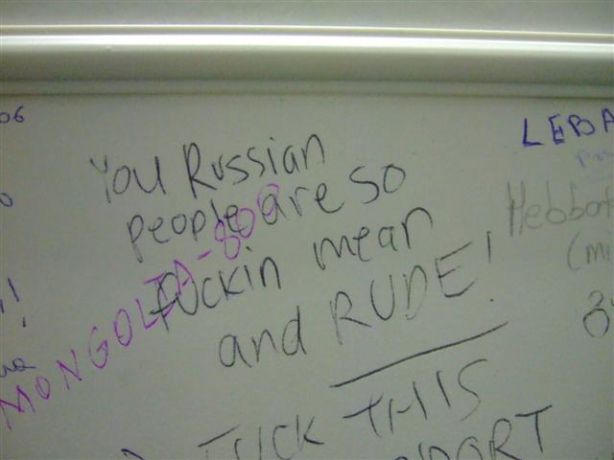 06
LEBA
You Russian
people are so
fuckin mean
and RUDE!
MONGOLIA-800
Hebbot
(mi
FUCK THIS
PORT